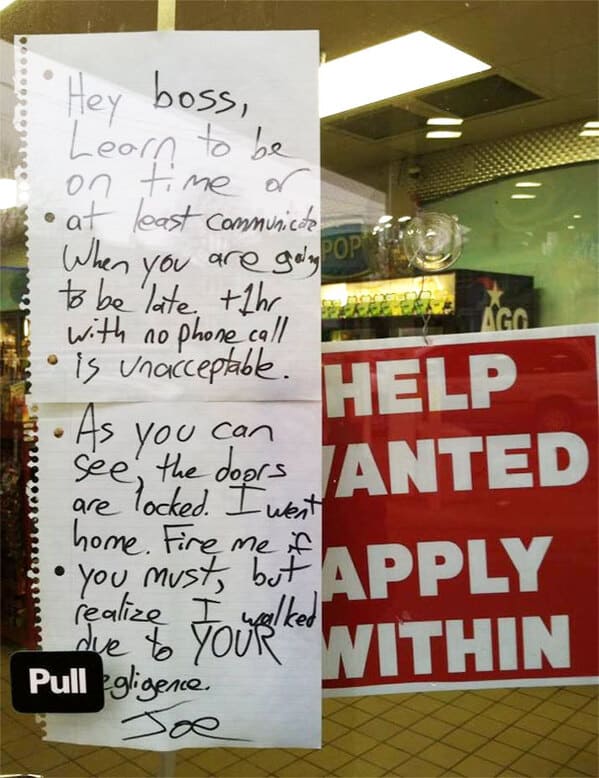 Hey boss,
Learn to be
on time or
at least communicate
When you are going
to be late. +1hr
with no phone call
is unacceptable.
As you can
see, the doors
are locked. I went
home. Fire me if
you must, but
realize I walked
due to YOUR
egligence.
Joe
Pull
POP
AGO
HELP
WANTED
APPLY
WITHIN